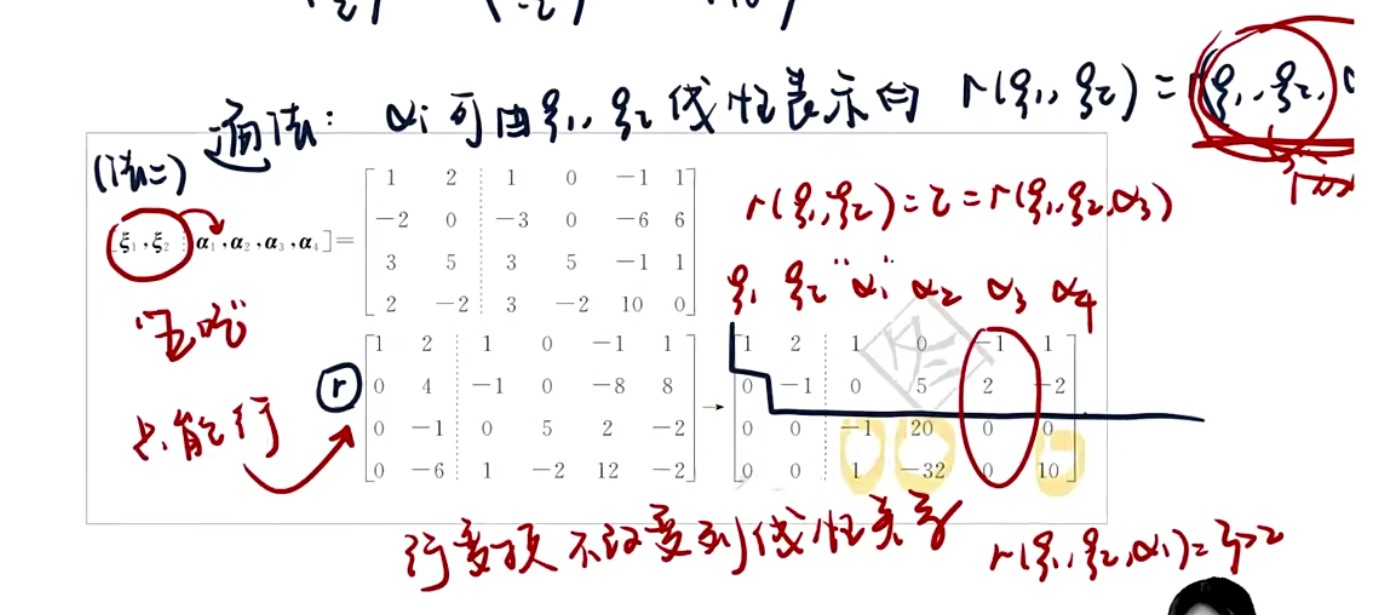 通法: αi 可由ξ1, ξ2 线性表示⇔ r(ξ1, ξ2) = r(ξ1, ξ2,
(法二)
[ξ1,ξ2 ⋮ α1,α2,α3,α4]=
1 2 1 0 −1 1
−2 0 −3 0 −6 6
3 5 3 5 −1 1
2 −2 3 −2 10 0
r(ξ1, ξ2) = 2 = r(ξ1, ξ2, α3)
ξ1 ξ2 "α1" α2 α3 α4
只能行
r
1 2 1 0 −1 1
0 4 −1 0 −8 8
0 −1 0 5 2 −2
0 −6 1 −2 12 −2
→
1 2 1 0 −1 1
0 −1 0 5 2 −2
0 0 −1 20 0 0
0 0 1 −32 0 10
图
行变换不改变列线性关系
r(ξ1, ξ2, α1) = 3>2